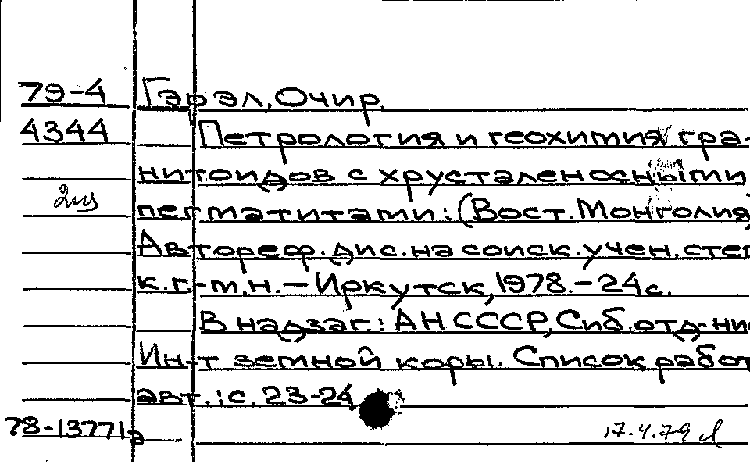 79-4 Гэрэл, Очир.
4344 Петрология и геохимия гра-
нитоидов с хрусталеносными
пегматитами: (Вост. Монголия)
Автореф. дис. на соиск. учен. степ
к. г.-м. н. - Иркутск, 1978. - 24 с.
В надзаг.: АН СССР, Сиб. отд-ни
Ин-т земной коры. Список работ
авт.: с. 23-24
78-13771а
17.4.79